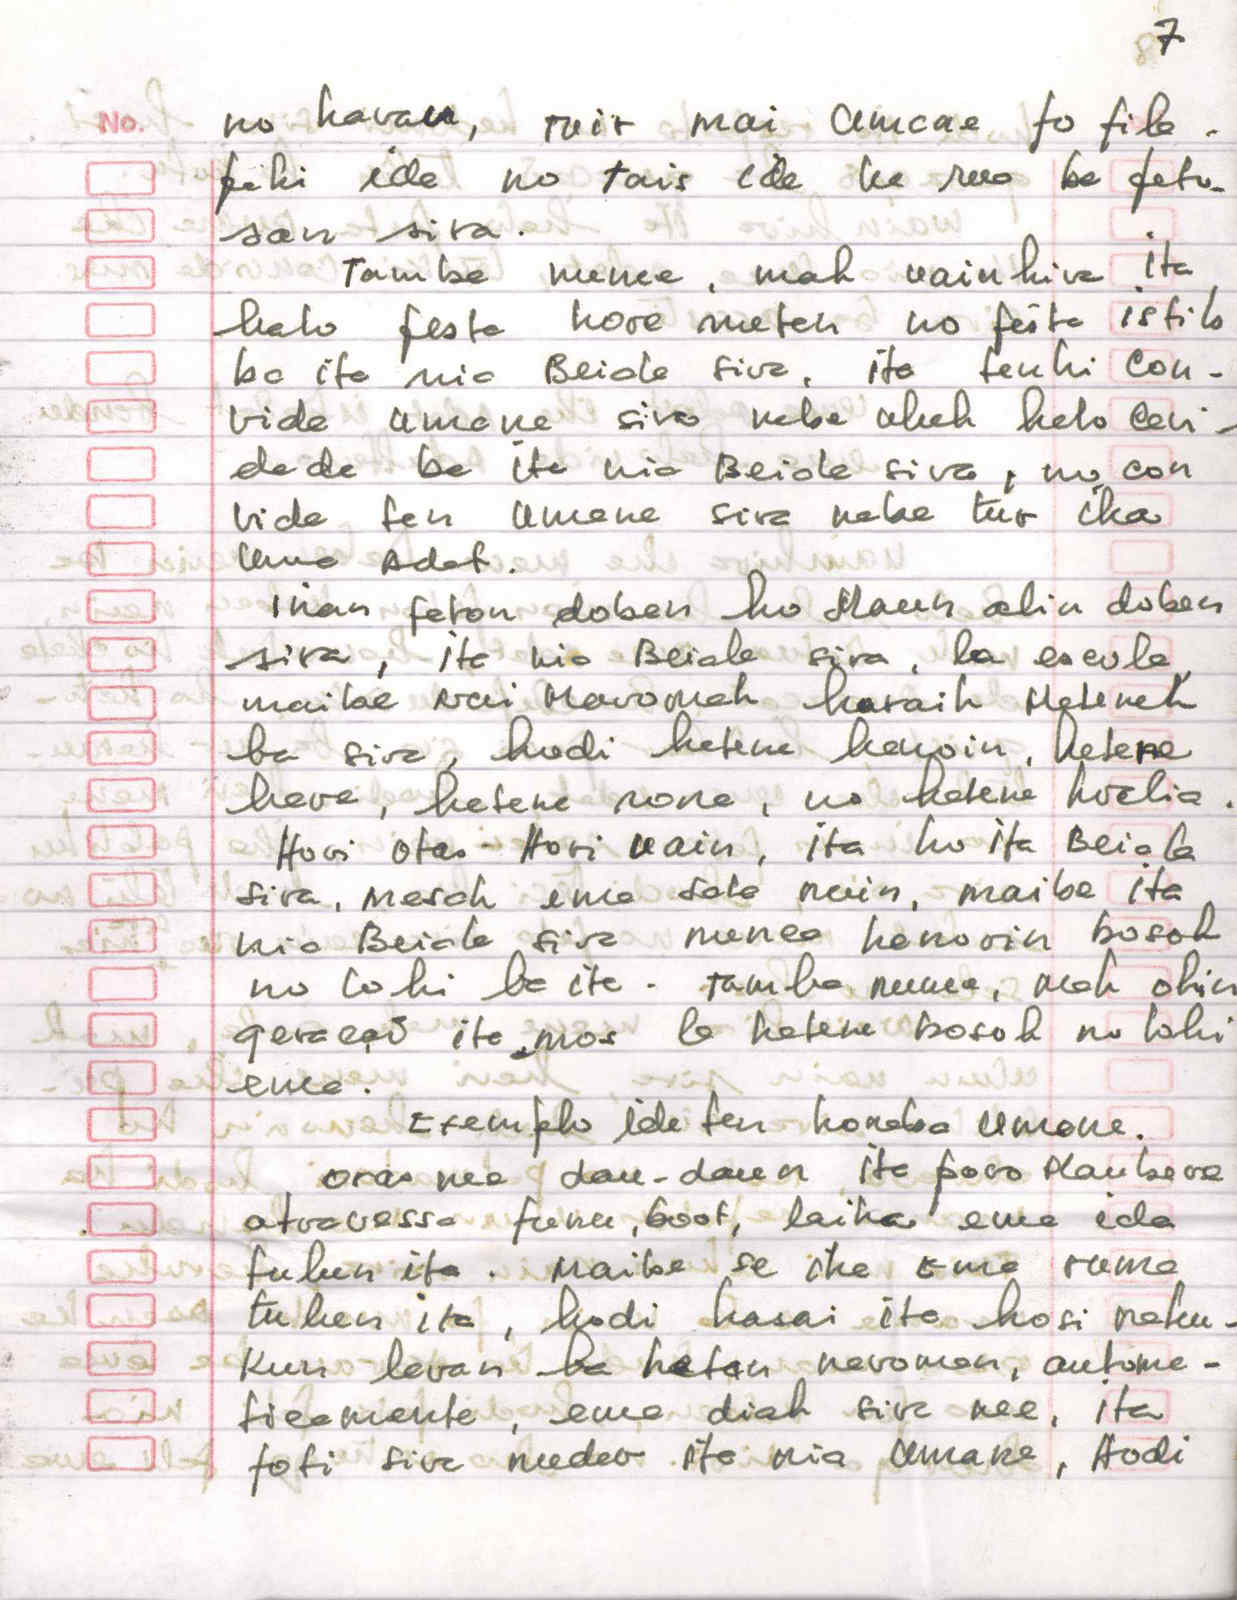 7
No.
no karau, tuir mai Umane fo fila-
fiki ida no tais ida ka rua ba feto-
san sira.
Tamba nunee, mak wainhira ita
halo festa kore metan no festa istilo
ba ita nia Beiala sira, ita tenki Con-
vida Umane sira nebe atu halo Cari
dade ba ita nia Beiala sira, no con
vida ten Umane sira nebe tur iha
Uma Adat.
Inan feton doben ho Maun alin doben
sira, ita nia Beiala sira, la escola,
maibe Nai Maromak hasaih Matenek
ba sira, hodi hatene hanoin, hatene
haree, hatene rona, no hatene koalia.
Hori otas-Hori uain, ita ho ita Beiala
sira, mesak ema deit, maibe ita
nia Beiala sira nunca hanorin bosok
no lohi ba ita. Tamba nunee, mak ohin
geração ita mos la hatene bosok no lohi
ema.
Exemplo ida ten konaba Umane.
oras nee dau-daun ita povo Maubere
atravessa funu boot, laiha ema ida
tulun ita. Maibe se iha Ema ruma
tulun ita, hodi hasai ita hosi naku-
kun levan ba hetan naroman, automa-
ticamente, ema diak sira nee, ita
foti sira nudar ita nia Umane, Hodi